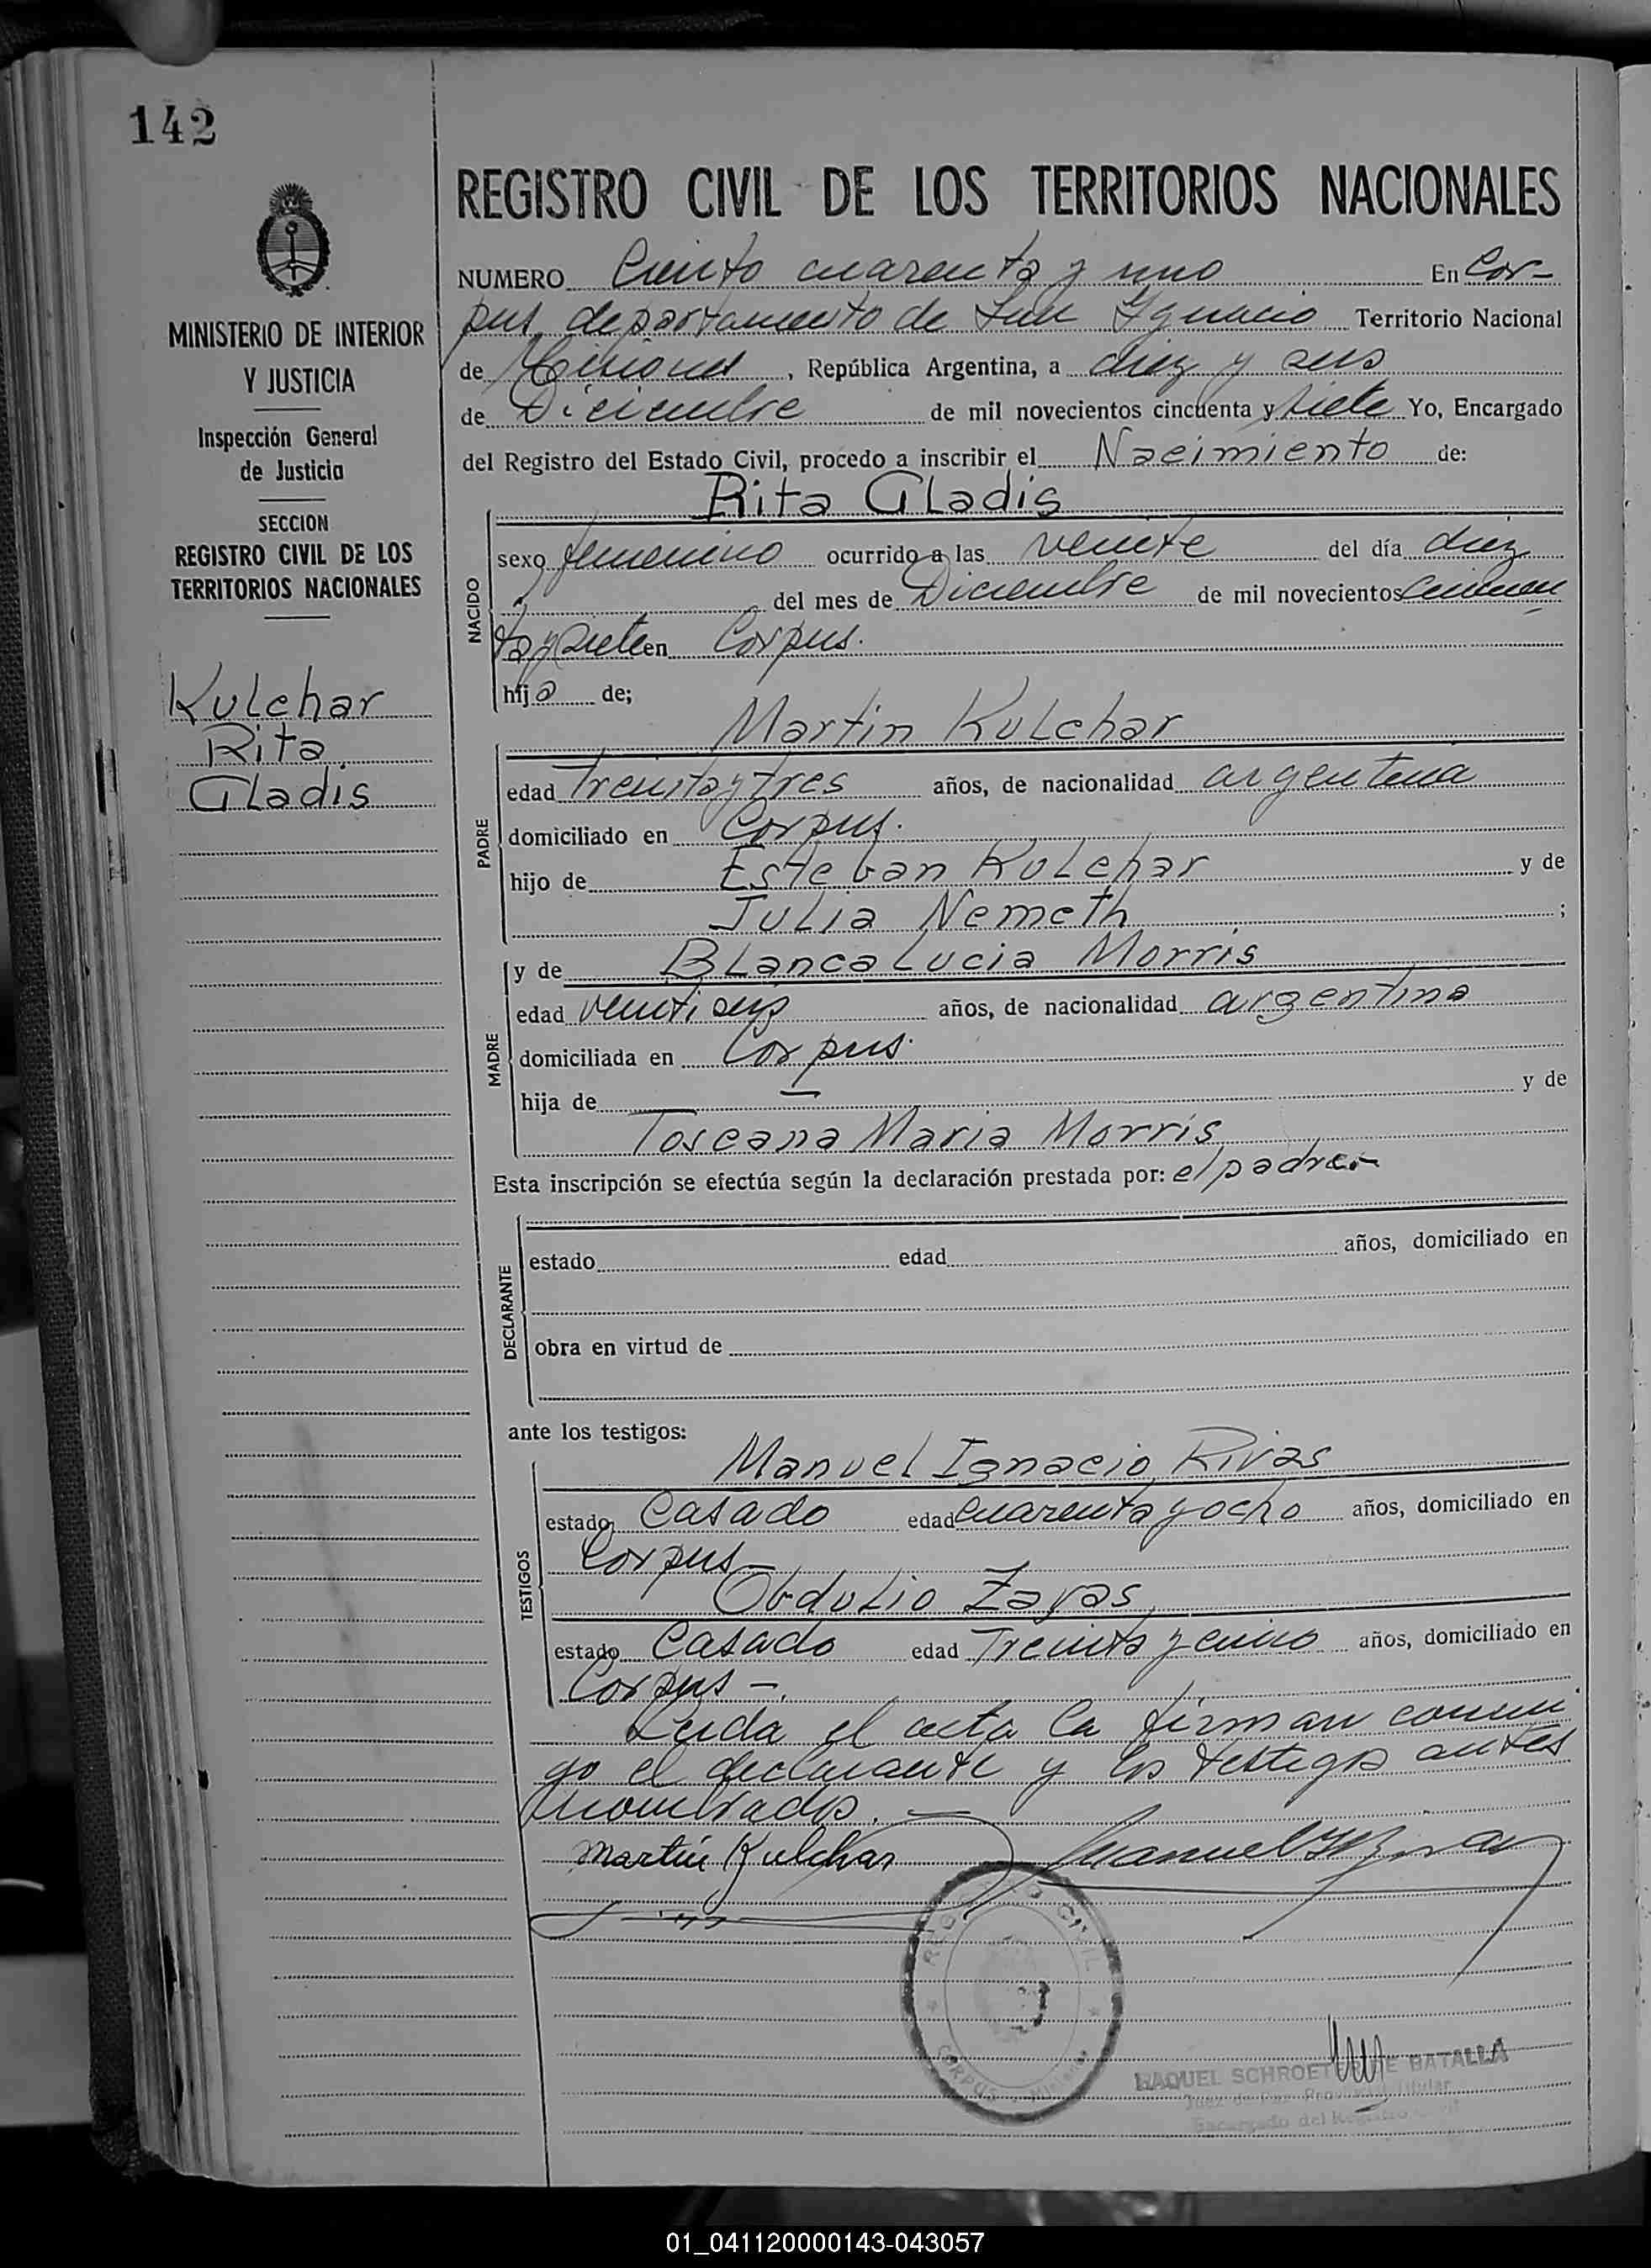 142
REGISTRO CIVIL DE LOS TERRITORIOS NACIONALES
MINISTERIO DE INTERIOR
Y JUSTICIA
Inspección General
de Justicia
SECCION
REGISTRO CIVIL DE LOS
TERRITORIOS NACIONALES
Kulchar
Rita
Gladis
NUMERO Ciento cuarenta y uno En Cor-
pus, departamento de San Ygnacio Territorio Nacional
de Misiones, República Argentina, a diez y seis
de Diciembre de mil novecientos cincuenta y siete Yo, Encargado
del Registro del Estado Civil, procedo a inscribir el Nacimiento de:
Rita Gladis
NACIDO
sexo femenino ocurrido a las veinte del día diez
del mes de Diciembre de mil novecientos cincuen
ta y siete en Corpus.
hija de;
Martin Kulchar
PADRE
edad treinta y tres años, de nacionalidad argentina
domiciliado en Corpus.
hijo de Esteban Kulchar y de
Julia Nemeth ;
y de Blanca Lucia Morris
MADRE
edad veintiseis años, de nacionalidad argentina
domiciliada en Corpus.
hija de — y de
Toscana Maria Morris
Esta inscripción se efectúa según la declaración prestada por: el padre.-
DECLARANTE
estado edad años, domiciliado en
obra en virtud de
ante los testigos:
Manuel Ignacio Rivas
TESTIGOS
estado Casado edad cuarenta y ocho años, domiciliado en
Corpus-
Obdulio Zayas
estado Casado edad Treinta y cinco años, domiciliado en
Corpus -.
Leida el acta la firman conmi
go el declarante y los testigos antes
nombrados. -
Martín Kulchar
REGISTRO CIVIL
CORPUS - Misiones
RAQUEL SCHROETER DE BATALLA
Juez de Paz Titular
Encargado del Registro Civil
01_041120000143-043057